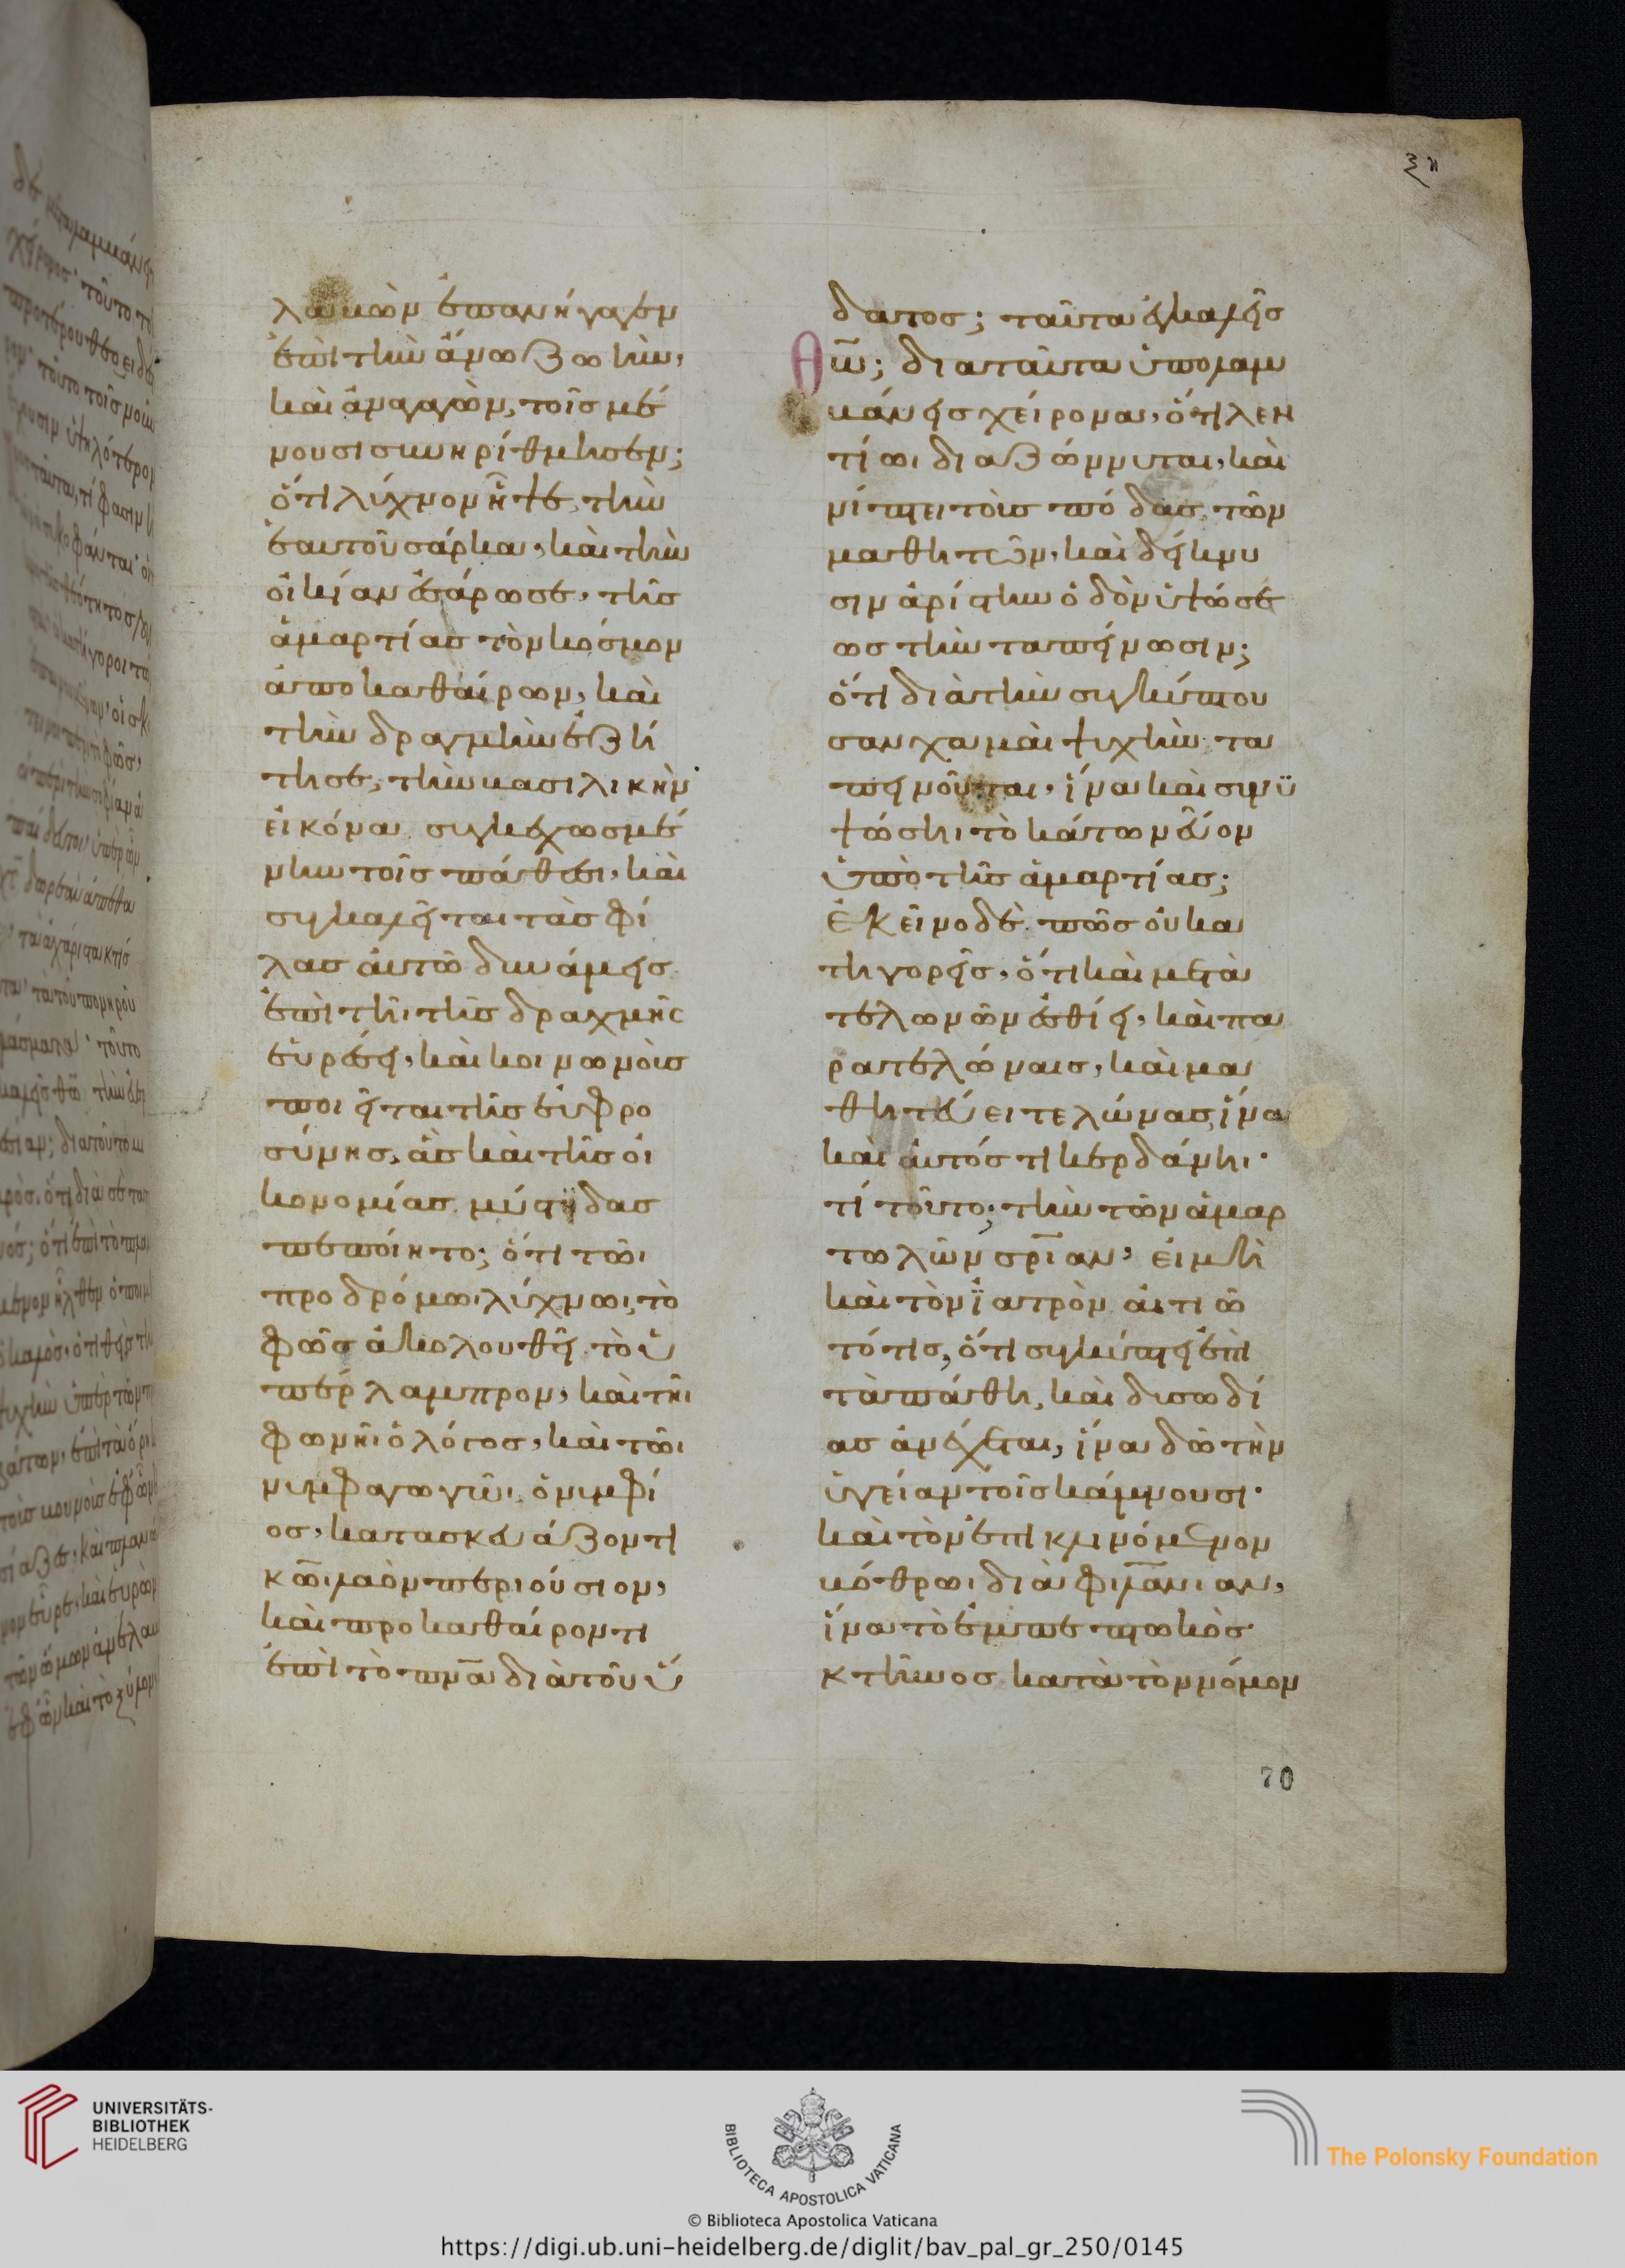 ξη
λαβὼν ἐπανήγαγεν
ἐπὶ τὴν ἄνω ζωὴν,
καὶ ἀναγαγὼν, τοῖς μέ
νουσι συνηρίθμησεν;
ὅτι λύχνον ἧψε, τὴν
ἑαυτοῦ σάρκα, καὶ τὴν
οἰκίαν ἐσάρωσε, τῆς
ἁμαρτίας τὸν κόσμον
ἀποκαθαίρων, καὶ
τὴν δραγμὴν ἐζή
τησε, τὴν βασιλικὴν
εἰκόνα συγκεχωσμέ
νην τοῖς πάθεσι, καὶ
συγκαλεῖται τὰς φί
λας αὐτῶ δυνάμεις
ἐπὶ τῆι τῆς δραχμῆς
εὑρέσει, καὶ κοινωνοὺς
ποιεῖται τῆς εὐφρο
σύνης, ἃς καὶ τῆς οἰ
κονομίας μύστιδας
πεποίητο; ὅτι τῶι
προδρόμωι λύχνωι, τὸ
φῶς ἀκολουθεῖ τὸ ὑ
πέρλαμπρον, καὶ τῆι
φωνῆι ὁ λόγος, καὶ τῶι
νυμφαγωγῶι, ὁ νυμφί
ος, κατασκευάζοντι
κῶι λαὸν περιούσιον,
καὶ προκαθαίροντι
ἐπὶ τὸ πνᾶ διὰ τοῦ ὕ
δατος; ταῦτα ἐγκαλεῖς
θῶ; διαταῦτα ὑπολαμ
βάνεις χείρονα, ὅτι λεν
τίωι διαζώννυται, καὶ
νίπτει τοὺς πόδας τῶν
μαθητῶν, καὶ δείκνυ
σιν ἀρίστην ὁδὸν ὑψώσε
ως τὴν ταπείνωσιν;
ὅτι διὰ τὴν συγκύπτου
σαν χαμαὶ ψυχὴν τα
πεινοῦται, ἵνα καὶ συνϋ
ψώσηι τὸ κάτω νεῦον
ὑπὸ τῆς ἁμαρτίας;
ἐκεῖνο δὲ πῶς οὐ κα
τηγορεῖς, ὅτι καὶ μετὰ
τελωνῶν ἐσθίει, καὶ πα
ρα τελώναις, καὶ μα
θητεύει τελώνας, ἵνα
καὶ αὐτός τι κερδάνηι·
τί τοῦτο; τὴν τῶν ἁμαρ
τωλῶν σρῖαν, εἰ μὴ
καὶ τὸν ϊατρὸν αἰτιῶ
τό τις, ὅτι συγκύπτει ἐπὶ
τὰ πάθη, καὶ δυσωδί
ας ἀνέχεται, ἵνα δῶ τὴν
ὑγείαν τοῖς κάμνουσι·
καὶ τὸν ἐπικλινόμενον
βόθρωι διὰ φιλανῖαν,
ἵνα τὸ ἐμπεπτωκὸς
κτῆνος κατὰ τὸν νόμον
70
UNIVERSITÄTS-
BIBLIOTHEK
HEIDELBERG
BIBLIOTECA APOSTOLICA VATICANA
The Polonsky Foundation
© Biblioteca Apostolica Vaticana
https://digi.ub.uni-heidelberg.de/diglit/bav_pal_gr_250/0145